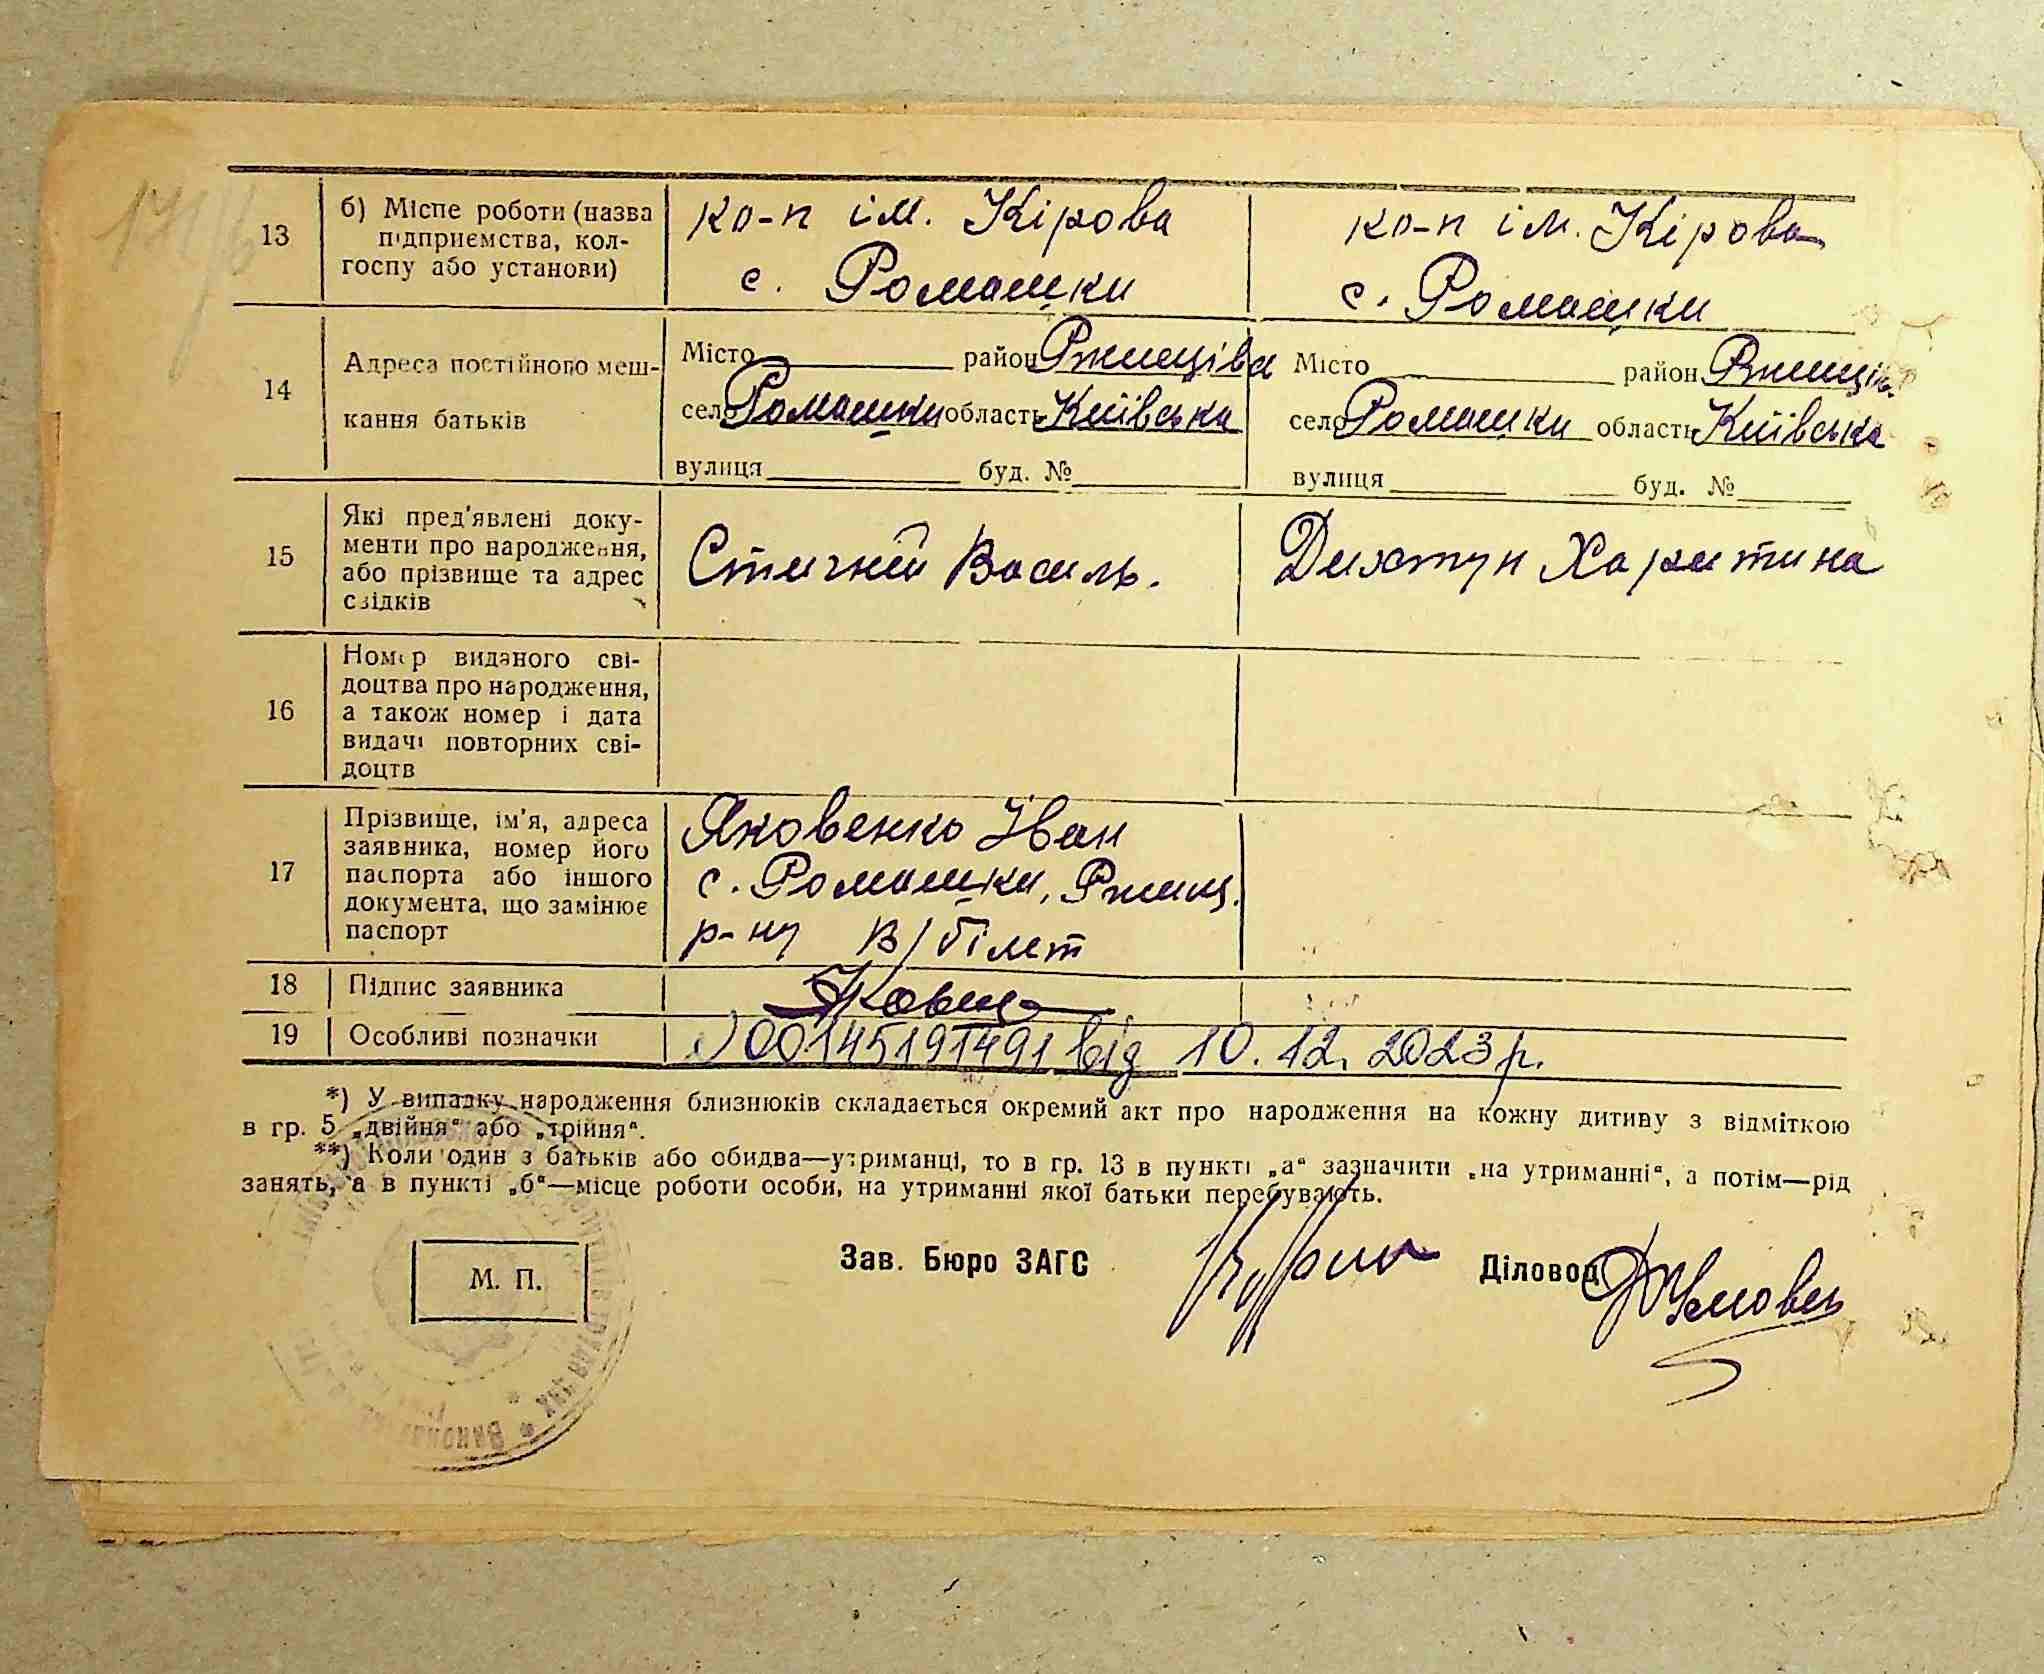 13
б) Місце роботи (назва
підприємства, кол-
госпу або установи)
ко-п ім. Кірова
с. Ромашки
ко-п ім. Кірова
с. Ромашки
14
Адреса постійного меш-
кання батьків
Місто район Ржищіва
село Ромашки область Київська
вулиця буд. №
Місто район Ржищів
село Ромашки область Київська
вулиця буд. №
15
Які пред'явлені доку-
менти про народження,
або прізвище та адрес
свідків
Стичний Василь.
Дихтун Харитина
16
Номер виданого сві-
доцтва про народження,
а також номер і дата
видачі повторних сві-
доцтв
17
Прізвище, ім'я, адреса
заявника, номер його
паспорта або іншого
документа, що замінює
паспорт
Яковенко Іван
с. Ромашки, Ржищ.
р-ну в/білет
18
Підпис заявника
19
Особливі позначки
00145191491 від 10.12.2023р.
*) У випадку народження близнюків складається окремий акт про народження на кожну дитину з відміткою
в гр. 5 „двійня“ або „трійня“.
**) Коли один з батьків або обидва—утриманці, то в гр. 13 в пункті „а“ зазначити „на утриманні“, а потім—рід
занять, а в пункті „б“—місце роботи особи, на утриманні якої батьки перебувають.
Зав. Бюро ЗАГС
Діловод
М. П.